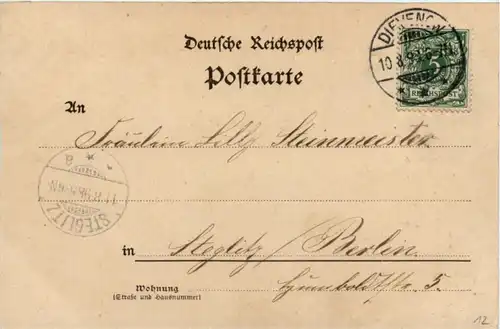 Deutsche Reichspost
Postkarte
DIEVENOW
10.8.98
5
REICHSPOST
An
Fräulein Lilly Steinmeister
STEGLITZ
in Steglitz / Berlin.
Humboldtstr. 5.
Wohnung
(Straße und Hausnummer)
12